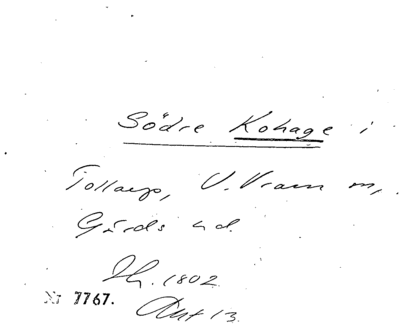 Södre Kohage i
Tollarp, V. Vram m,
Gärds hd.
Th. 1802
Nr 7767.
Akt 13